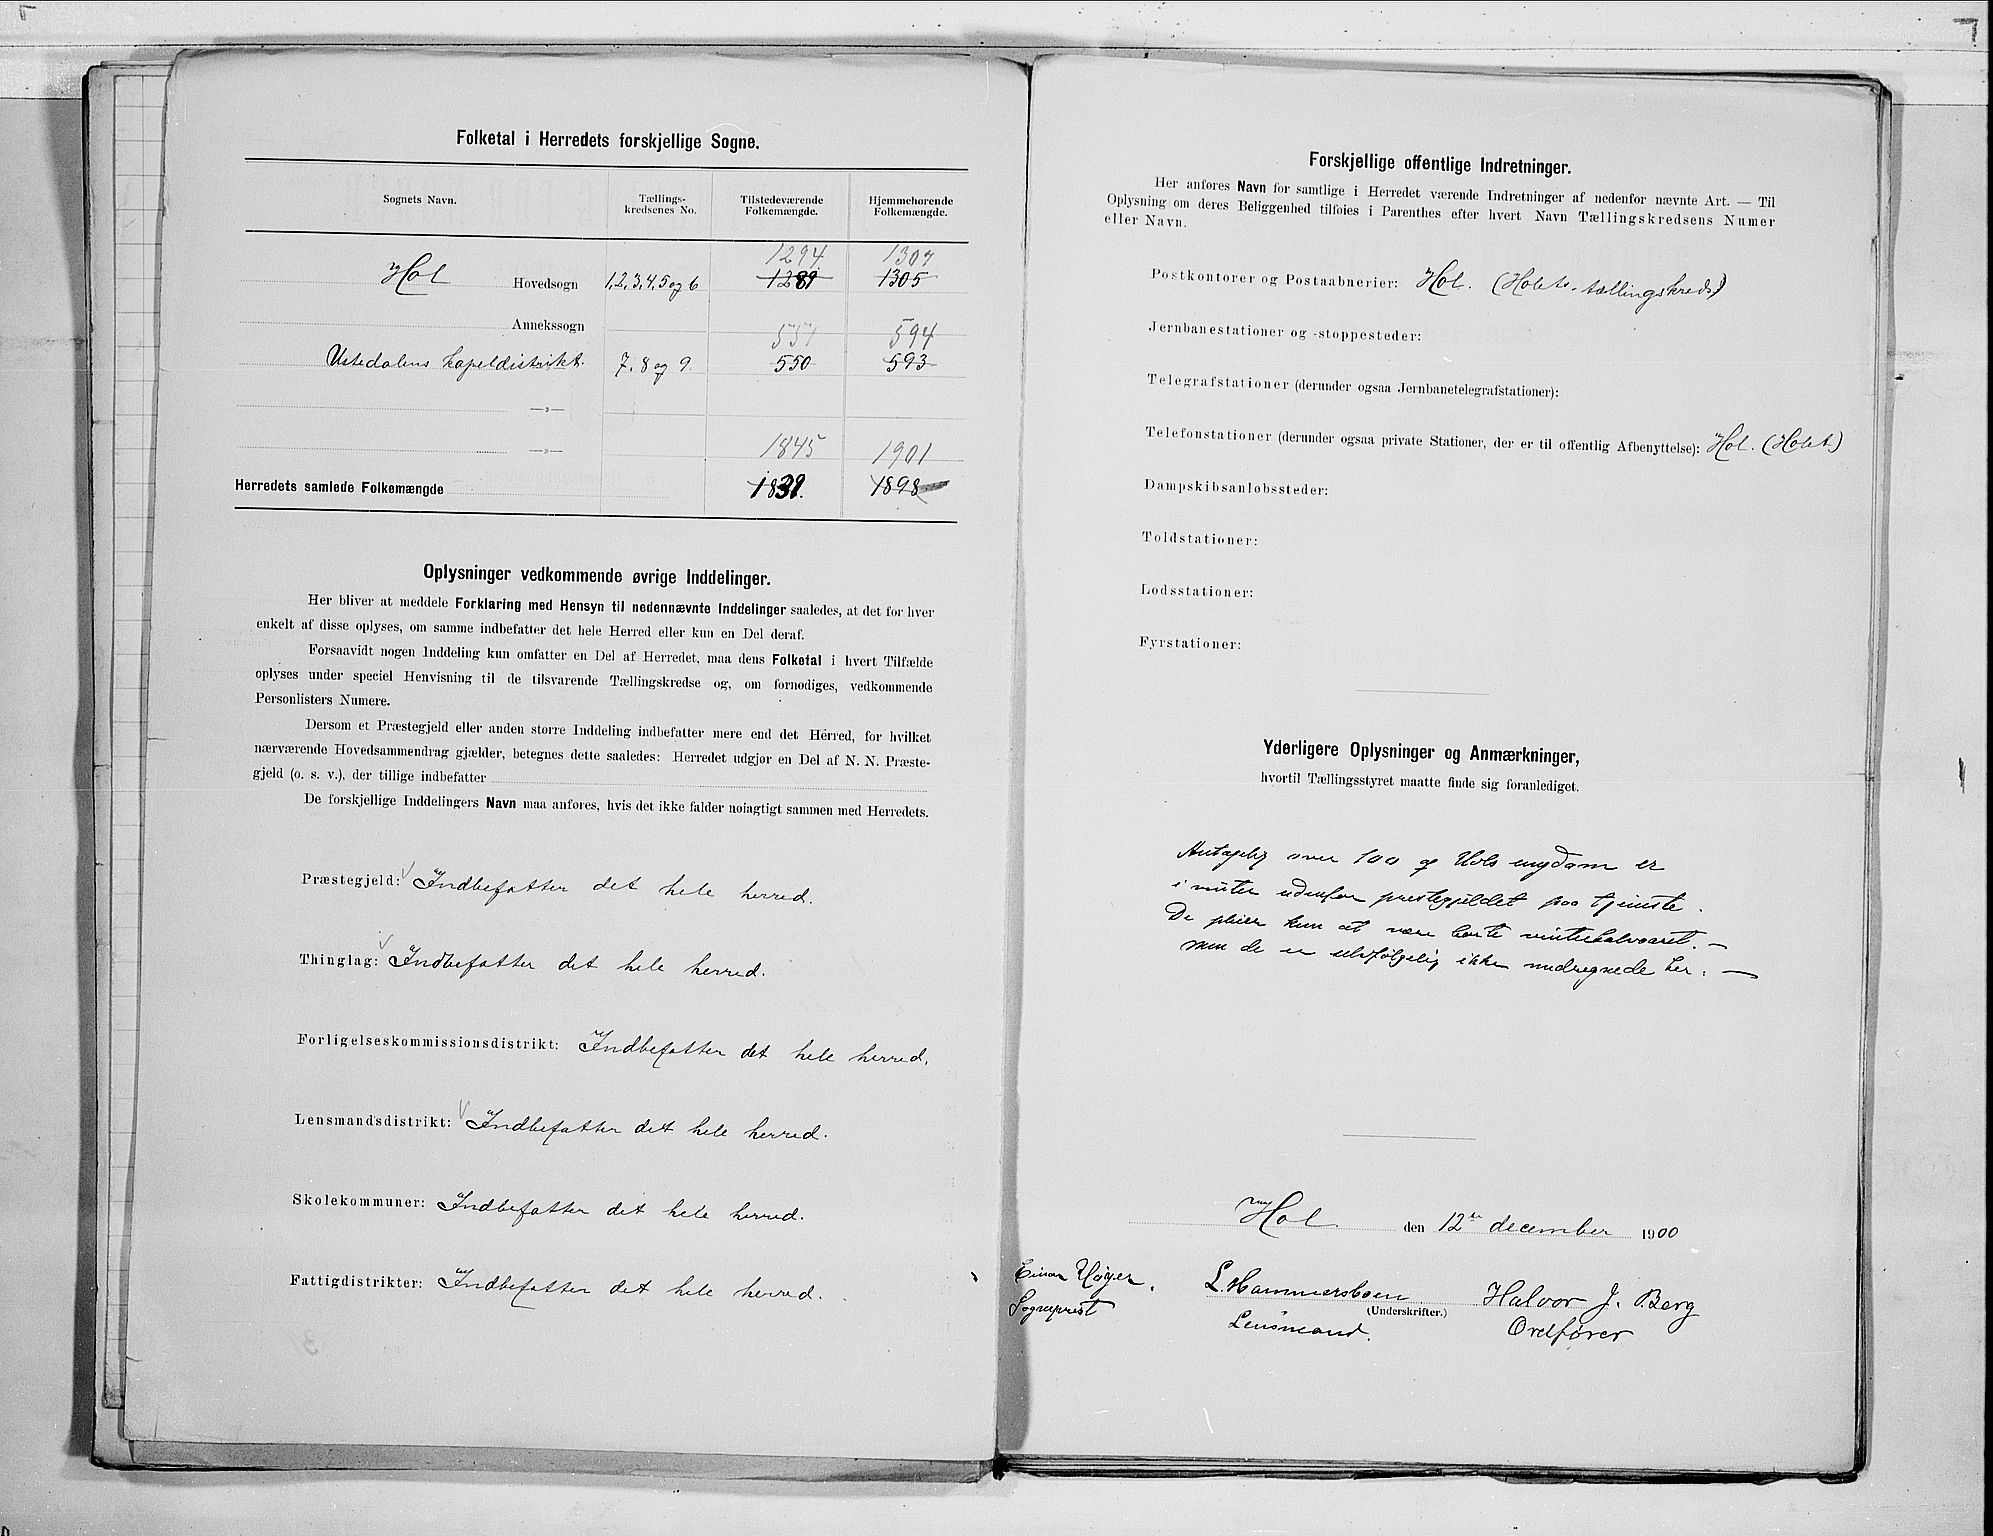 Folketal i Herredets forskjellige Sogne.
Sognets Navn. Tællings-kredsenes No. Tilstedeværende Folkemængde. Hjemmehørende Folkemængde.
1294 1307
Hol Hovedsogn 1,2,3,4,5 og 6 1289 1305
Annekssogn
551 594
Ustedalens kapeldistrikt. 7, 8 og 9. 550 593
—»—
1845 1901
—»—
Herredets samlede Folkemængde 1839. 1898
Oplysninger vedkommende øvrige Inddelinger.
Her bliver at meddele Forklaring med Hensyn til nedennævnte Inddelinger saaledes, at det for hver
enkelt af disse oplyses, om samme indbefatter det hele Herred eller kun en Del deraf.
Forsaavidt nogen Inddeling kun omfatter en Del af Herredet, maa dens Folketal i hvert Tilfælde
oplyses under speciel Henvisning til de tilsvarende Tællingskredse og, om fornødiges, vedkommende
Personlisters Numere.
Dersom et Præstegjeld eller anden større Inddeling indbefatter mere end det Herred, for hvilket
nærværende Hovedsammendrag gjælder, betegnes dette saaledes: Herredet udgjør en Del af N. N. Præste-
gjeld (o. s. v.), der tillige indbefatter
De forskjellige Inddelingers Navn maa anføres, hvis det ikke falder nøiagtigt sammen med Herredets.
Præstegjeld: Indbefatter det hele herred.
Thinglag: Indbefatter det hele herred.
Forligelseskommissionsdistrikt: Indbefatter det hele herred.
Lensmandsdistrikt: Indbefatter det hele herred.
Skolekommuner: Indbefatter det hele herred.
Fattigdistrikter: Indbefatter det hele herred.
Forskjellige offentlige Indretninger.
Her anføres Navn for samtlige i Herredet værende Indretninger af nedenfor nævnte Art. — Til
Oplysning om deres Beliggenhed tilføies i Parenthes efter hvert Navn Tællingskredsens Numer
eller Navn.
Postkontorer og Postaabnerier: Hol. (Holets tællingskreds)
Jernbanestationer og -stoppesteder:
Telegrafstationer (derunder ogsaa Jernbanetelegrafstationer):
Telefonstationer (derunder ogsaa private Stationer, der er til offentlig Afbenyttelse): Hol. (Holet)
Dampskibsanløbssteder:
Toldstationer:
Lodsstationer:
Fyrstationer:
Yderligere Oplysninger og Anmærkninger,
hvortil Tællingsstyret maatte finde sig foranlediget.
Antagelig over 100 af Hols ungdom er
i vinter udenfor prestegjeldet paa tjeneste.
De pleier kun at være borte vinterhalvaaret. —
men de er selvfølgelig ikke medregnede her. —
Hol den 12te december 1900
Einar Høyer. L. Hammersboen Halvor J. Berg
(Underskrifter.)
Sogneprest Lensmand. Ordfører